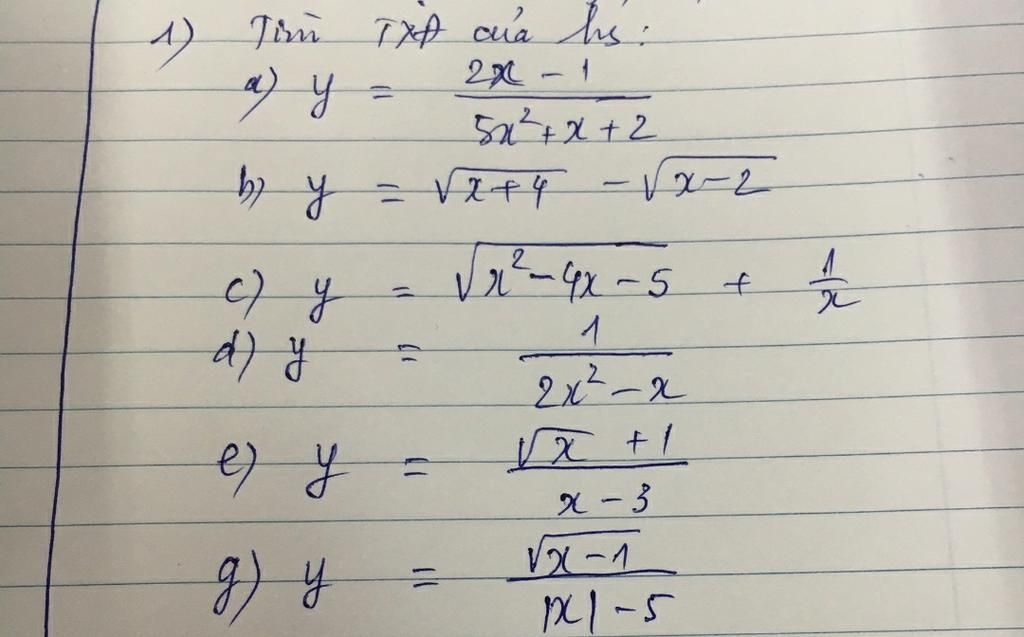 1) Tìm TXĐ của hs:
a) y = (2x - 1)/(5x² + x + 2)
b) y = √(x+4) - √(x-2)
c) y = √(x² - 4x - 5) + 1/x
d) y = 1/(2x² - x)
e) y = (√x + 1)/(x - 3)
g) y = √(x-1)/(|x| - 5)